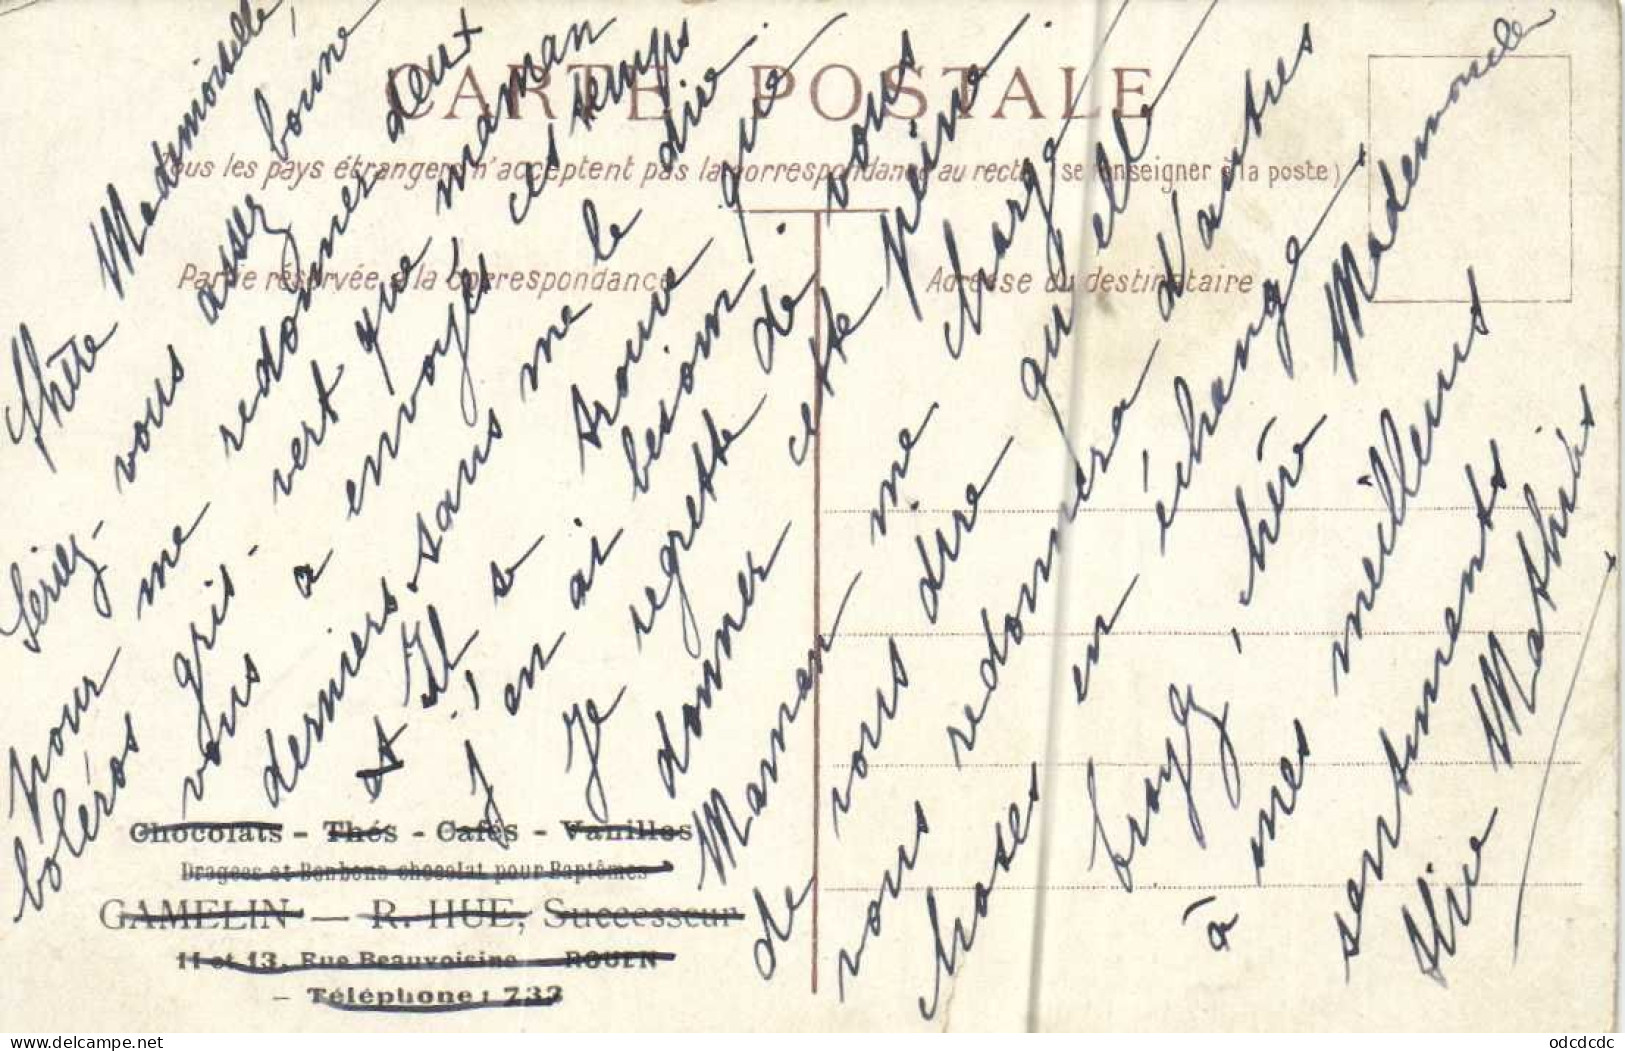 CARTE POSTALE
Tous les pays étrangers n'acceptent pas la correspondance au recto (se renseigner à la poste)
Partie réservée à la correspondance
Adresse du destinataire
Chère Mademoiselle,
Seriez-vous assez bonne
pour me redonner deux
boléros gris-vert que maman
vous a envoyés ces temps
derniers sans me le dire
et Il se trouve que
j'en ai besoin. je
Je regrette de vous
donner cette peine.
Maman me charge
de vous dire qu'elle
vous redonnera d'autres
choses en échange -
Croyez, chère Mademoiselle
à mes meilleurs
sentiments
Mathieu
Chocolats - Thés - Cafés - Vanilles
Dragées et Bonbons chocolat pour Baptêmes
GAMELIN — R. HUE, Successeur
11 et 13, Rue Beauvoisine - ROUEN
- Téléphone : 733
odcdcdc